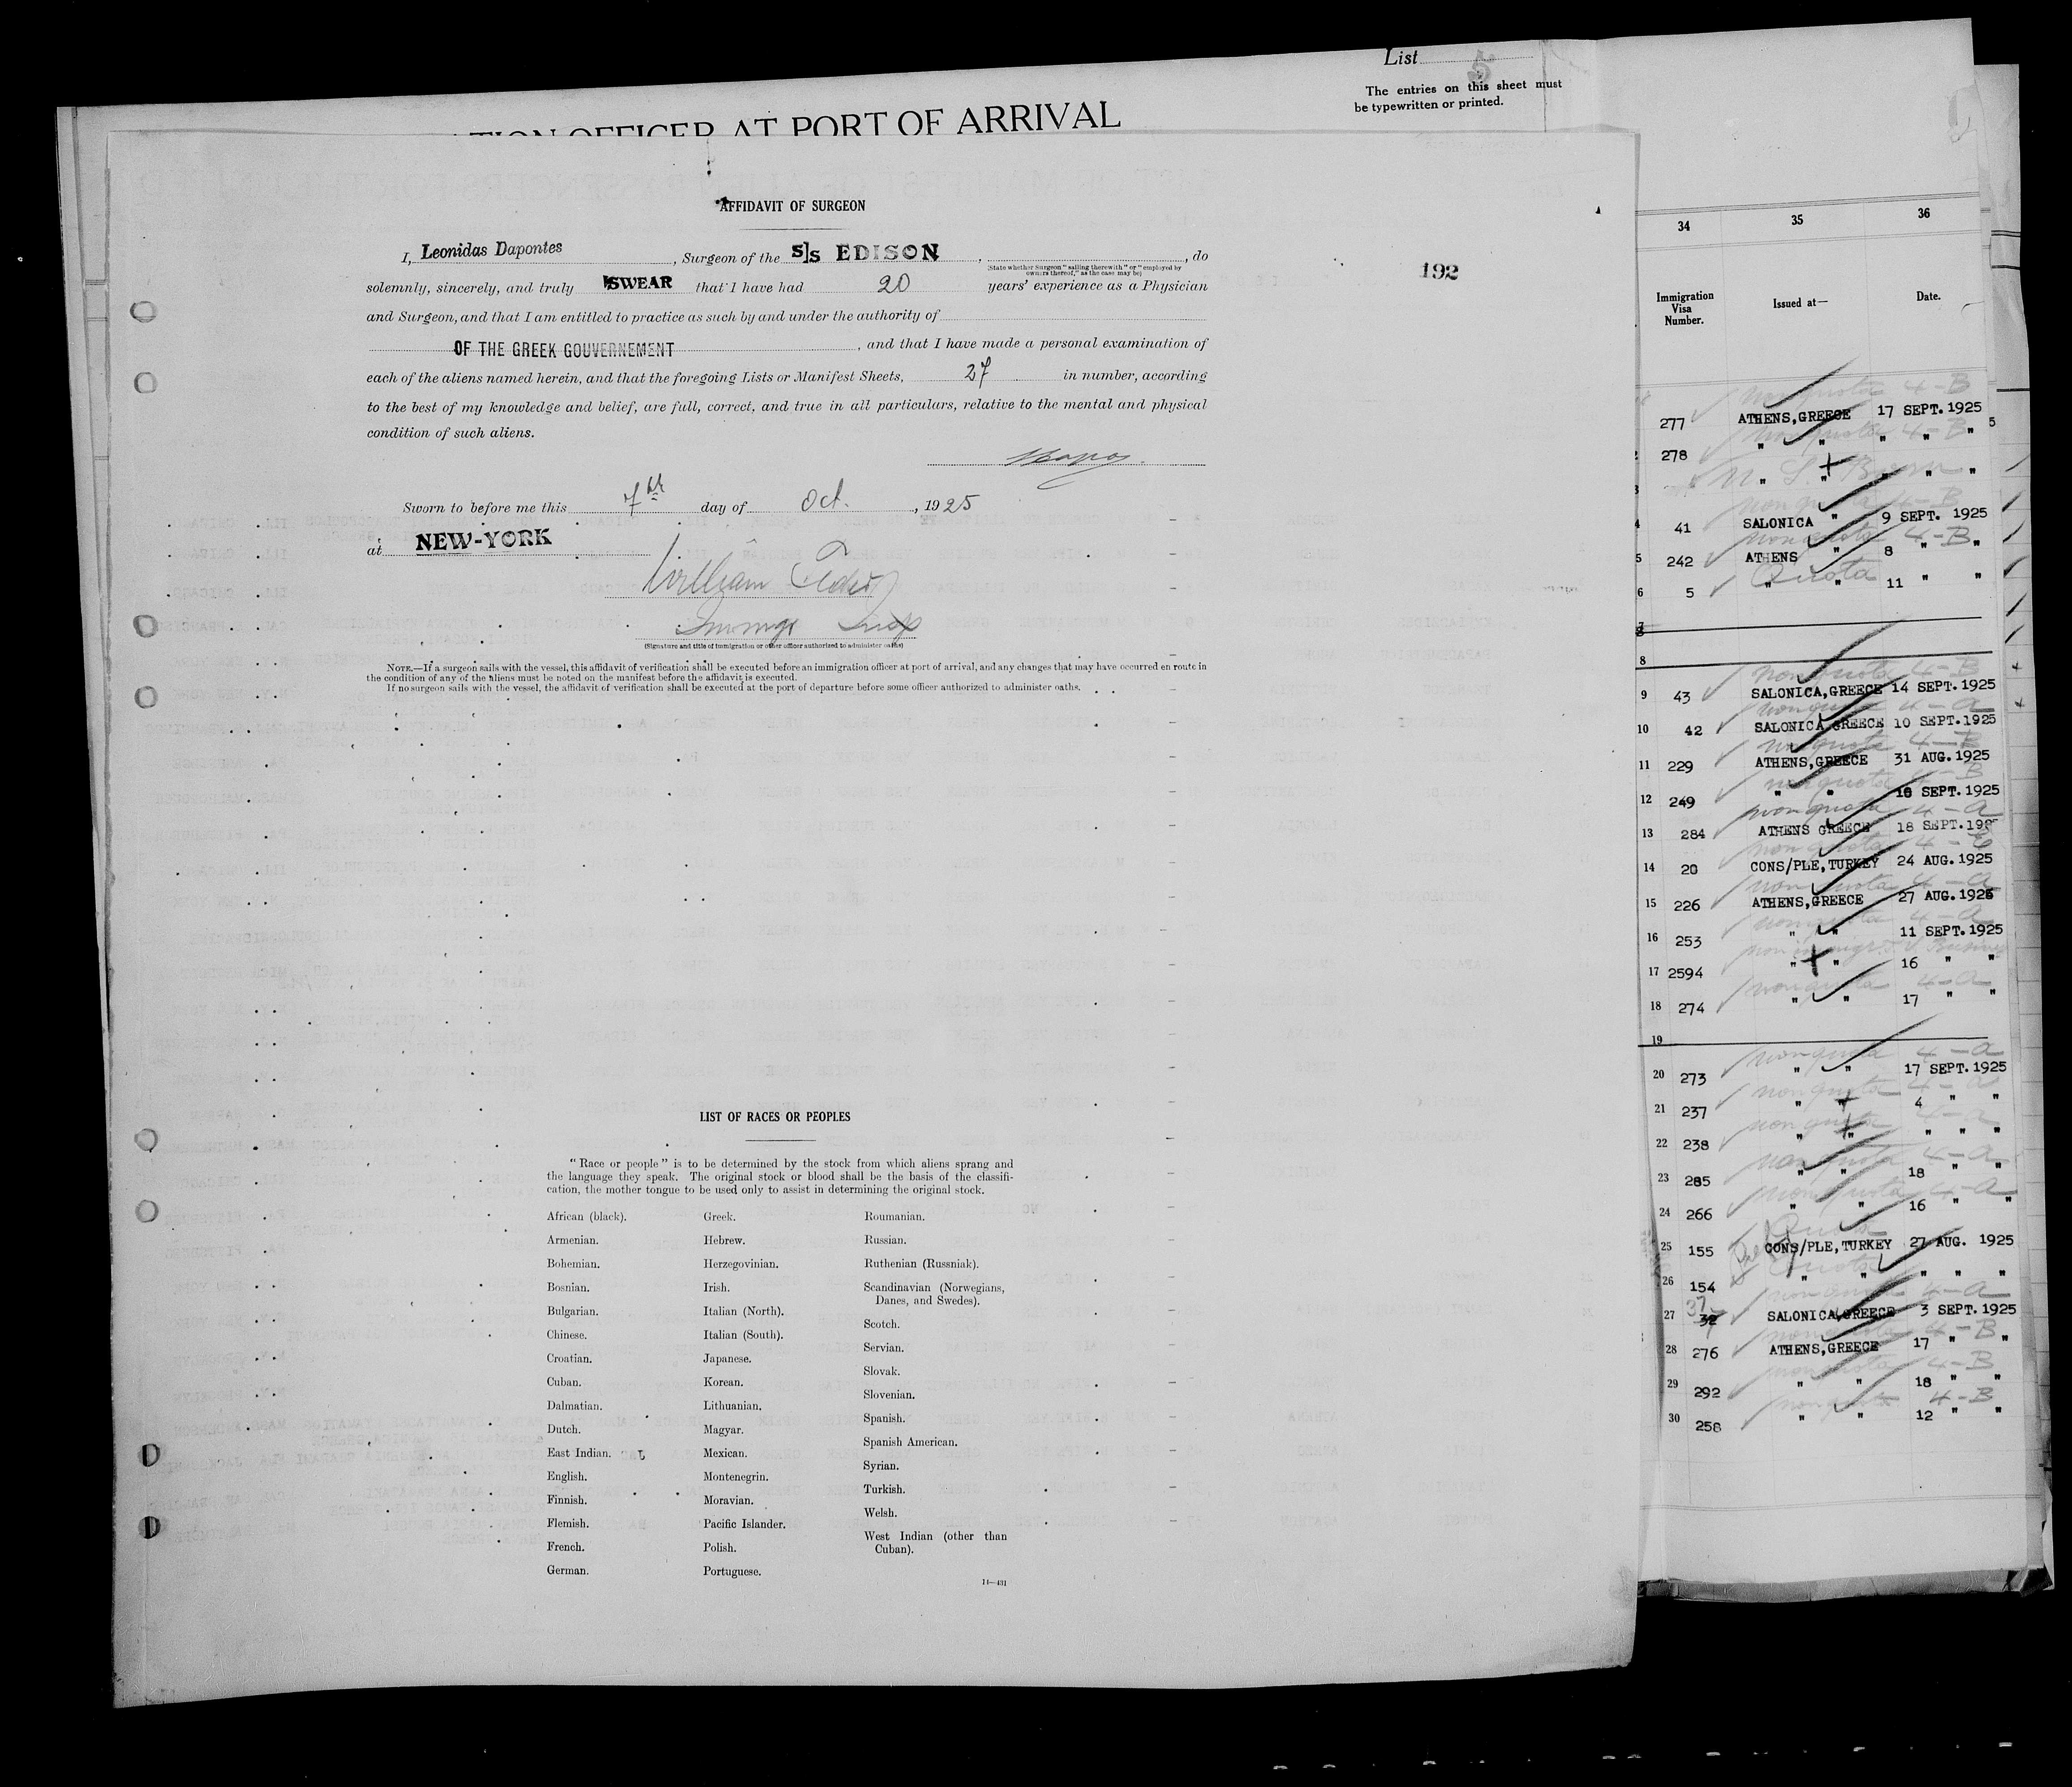 List 5
The entries on this sheet must
be typewritten or printed.
TION OFFICER AT PORT OF ARRIVAL
AFFIDAVIT OF SURGEON
I, Leonidas Dapontes, Surgeon of the S/S EDISON, , do
(State whether Surgeon "sailing therewith" or "employed by
owners thereof," as the case may be)
192
solemnly, sincerely, and truly SWEAR that I have had 20 years' experience as a Physician
and Surgeon, and that I am entitled to practice as such by and under the authority of
OF THE GREEK GOUVERNEMENT, and that I have made a personal examination of
each of the aliens named herein, and that the foregoing Lists or Manifest Sheets, 27 in number, according
to the best of my knowledge and belief, are full, correct, and true in all particulars, relative to the mental and physical
condition of such aliens.
Sworn to before me this 7th day of Oct., 1925
at NEW-YORK
William
(Signature and title of immigration or other officer authorized to administer oaths)
NOTE.—If a surgeon sails with the vessel, this affidavit of verification shall be executed before an immigration officer at port of arrival, and any changes that may have occurred en route in
the condition of any of the aliens must be noted on the manifest before the affidavit is executed.
If no surgeon sails with the vessel, the affidavit of verification shall be executed at the port of departure before some officer authorized to administer oaths.
LIST OF RACES OR PEOPLES
"Race or people" is to be determined by the stock from which aliens sprang and
the language they speak. The original stock or blood shall be the basis of the classifi-
cation, the mother tongue to be used only to assist in determining the original stock.
African (black).
Armenian.
Bohemian.
Bosnian.
Bulgarian.
Chinese.
Croatian.
Cuban.
Dalmatian.
Dutch.
East Indian.
English.
Finnish.
Flemish.
French.
German.
Greek.
Hebrew.
Herzegovinian.
Irish.
Italian (North).
Italian (South).
Japanese.
Korean.
Lithuanian.
Magyar.
Mexican.
Montenegrin.
Moravian.
Pacific Islander.
Polish.
Portuguese.
Roumanian.
Russian.
Ruthenian (Russniak).
Scandinavian (Norwegians,
Danes, and Swedes).
Scotch.
Servian.
Slovak.
Slovenian.
Spanish.
Spanish American.
Syrian.
Turkish.
Welsh.
West Indian (other than
Cuban).
14—431
34 35 36
Immigration
Visa
Number.
Issued at—
Date.
non quota 4-B
277 ATHENS, GREECE 17 SEPT. 1925
non quota 4-B
278 " " " " "
" " " " "
non quota 4-B
4 41 SALONICA " 9 SEPT. 1925
non quota 4-B
5 242 ATHENS " 8 " "
Quota
6 5 " " 11 " "
7
8
non quota 4-B
9 43 SALONICA, GREECE 14 SEPT. 1925
non quota 4-a
10 42 SALONICA GREECE 10 SEPT. 1925
non quota 4-B
11 229 ATHENS, GREECE 31 AUG. 1925
non quota 4-B
12 249 " " 10 SEPT. 1925
non quota 4-a
13 284 ATHENS GREECE 18 SEPT. 192
non quota
14 20 CONS/PLE, TURKEY 24 AUG. 1925
non quota 4-a
15 226 ATHENS, GREECE 27 AUG. 1925
non quota 4-a
16 253 " " 11 SEPT. 1925
17 2594 " " 16 " "
non quota 4-a
18 274 " " 17 " "
19
non quota 4-a
20 273 " " 17 SEPT. 1925
non quota 4-a
21 237 " " 4 " "
non quota 4-a
22 238 " " " " "
non quota 4-a
23 285 " " 18 " "
non quota 4-a
24 266 " " 16 " "
Quota
25 155 CONS/PLE, TURKEY 27 AUG. 1925
Quota
26 154 " " " " "
non quota 4-a
27 32 37 SALONICA, GREECE 3 SEPT. 1925
non quota 4-B
28 276 ATHENS, GREECE 17 " "
non quota 4-B
29 292 " " 18 " "
non quota 4-B
30 258 " " 12 " "